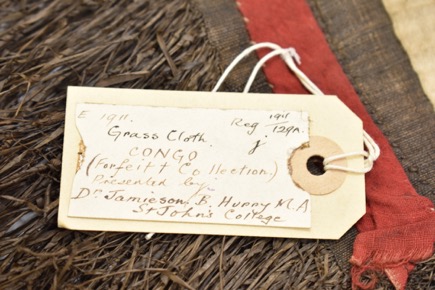 E 1911.
Reg 1911/129A.
Grass Cloth.
CONGO
(Forfeitt Collection)
Presented by
Dr Jamieson B. Hurry M.A
St John's College